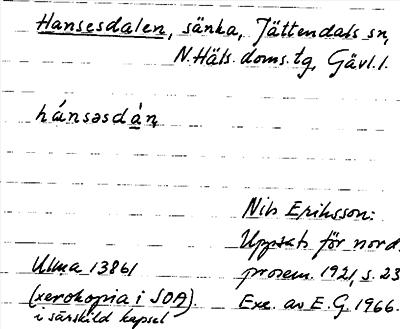 Hansesdalen, sänka, Jättendals sn,
N. Häls. doms. tg, Gävl. l.
hánsəsdàn,
Nils Eriksson:
Uppsats för nord.
Ulma 13861
prosem. 1921, s. 23
(xerokopia i SOA).
Exc. av E. G. 1966.
i särskild kapsel